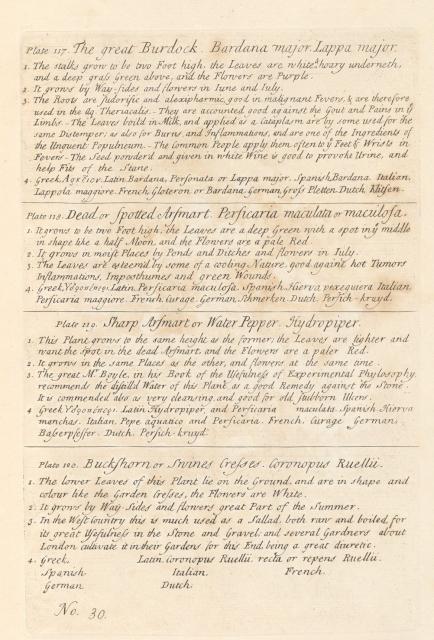 Plate 117. The great Burdock. Bardana major. Lappa major.
1. The stalks grow to be two Foot high, the Leaves are white & hoary underneth,
and a deep graſs Green above, and the Flowers are Purple.
2. It grows by Way-ſides and flowers in Iune and Iuly.
3. The Roots are ſudorific and alexipharmic, good in malignant Fevers, & are therefore
used in the Aq. Theriacalis. They are accounted good against the Gout and Pains in ẏ
Limbs. The Leaves boild in Milk, and applied as a Cataplasm are by some used for the
same Distemper; as also for Burns, and Inflammations, and are one of the Ingredients of
the Unguent Populneum. The Common People apply them often to ẏ Feet & Wrists in
Fevers. The Seed powderd and given in white Wine is good to provoke Urine, and
help Fits of the Stone.
4. Greek, Latin, Perſonata or Lappa major. Spanish, Bardana. Italian,
Lappola maggiore. French, Gloteron or Bardana. German, Groſs Pletten. Dutch,
Plate 118. Dead or Spotted Arſmart. Perſicaria maculata or maculoſa.
1. It grows to be two Foot high, the Leaves are a deep Green with a spot in ẏ middle
in shape like a half Moon, and the Flowers are a pale Red.
2. It grows in moiſt Places by Ponds and Ditches and flowers in Iuly.
3. The Leaves are eſteem'd by some of a cooling Nature, good againſt hot Tumors
Inflammations, Impoſthumes and green Wounds.
4. Greek, Latin, Perſicaria maculoſa. Spanish, Hierva pexeguera Italian
Perſicaria maggiore. French, Curage. German, Dutch. Perſich-kruyd.
Plate 119. Sharp Arſmart or Water Pepper. Hydropiper.
1. This Plant grows to the same height as the former; the Leaves are lighter and
want the Spot in the dead Arſmart, and the Flowers are a paler Red.
2. It grows in the same Places as the other, and flowers at the same time.
3. The great Mr. Boyle, in his Book of the Uſefulneſs of Experimental Phyloſophy,
recommends the diſtilld Water of this Plant as a good Remedy against the Stone.
It is commended also as very cleansing, and good for old ſtubborn Ulcers.
4. Greek Latin, Hydropiper, and Perſicaria maculata. Spanish, Hierva
manchas. Italian, Pepe aquatico and Perſicaria. French, Curage German,
Dutch. Perſich-kruyd.
Plate 120. Buckſhorn or Swines Creſses. Coronopus Ruellii.
1. The lower Leaves of this Plant lie on the Ground, and are in shape and
colour like the Garden Creſses, the Flowers are White.
2. It grows by Way-Sides and flowers great Part of the Summer.
3. In the Weſt Country this is much used as a Sallad, both raw and boiled, for
its great Uſefulneſs in the Stone and Gravel; and several Gardners about
London cultivate it in their Gardens for this End, being a great diuretic.
4. Greek. Latin. Coronopus Ruellii, recta or repens Ruellii.
Spanish. Italian. French.
German. Dutch.
No. 30.